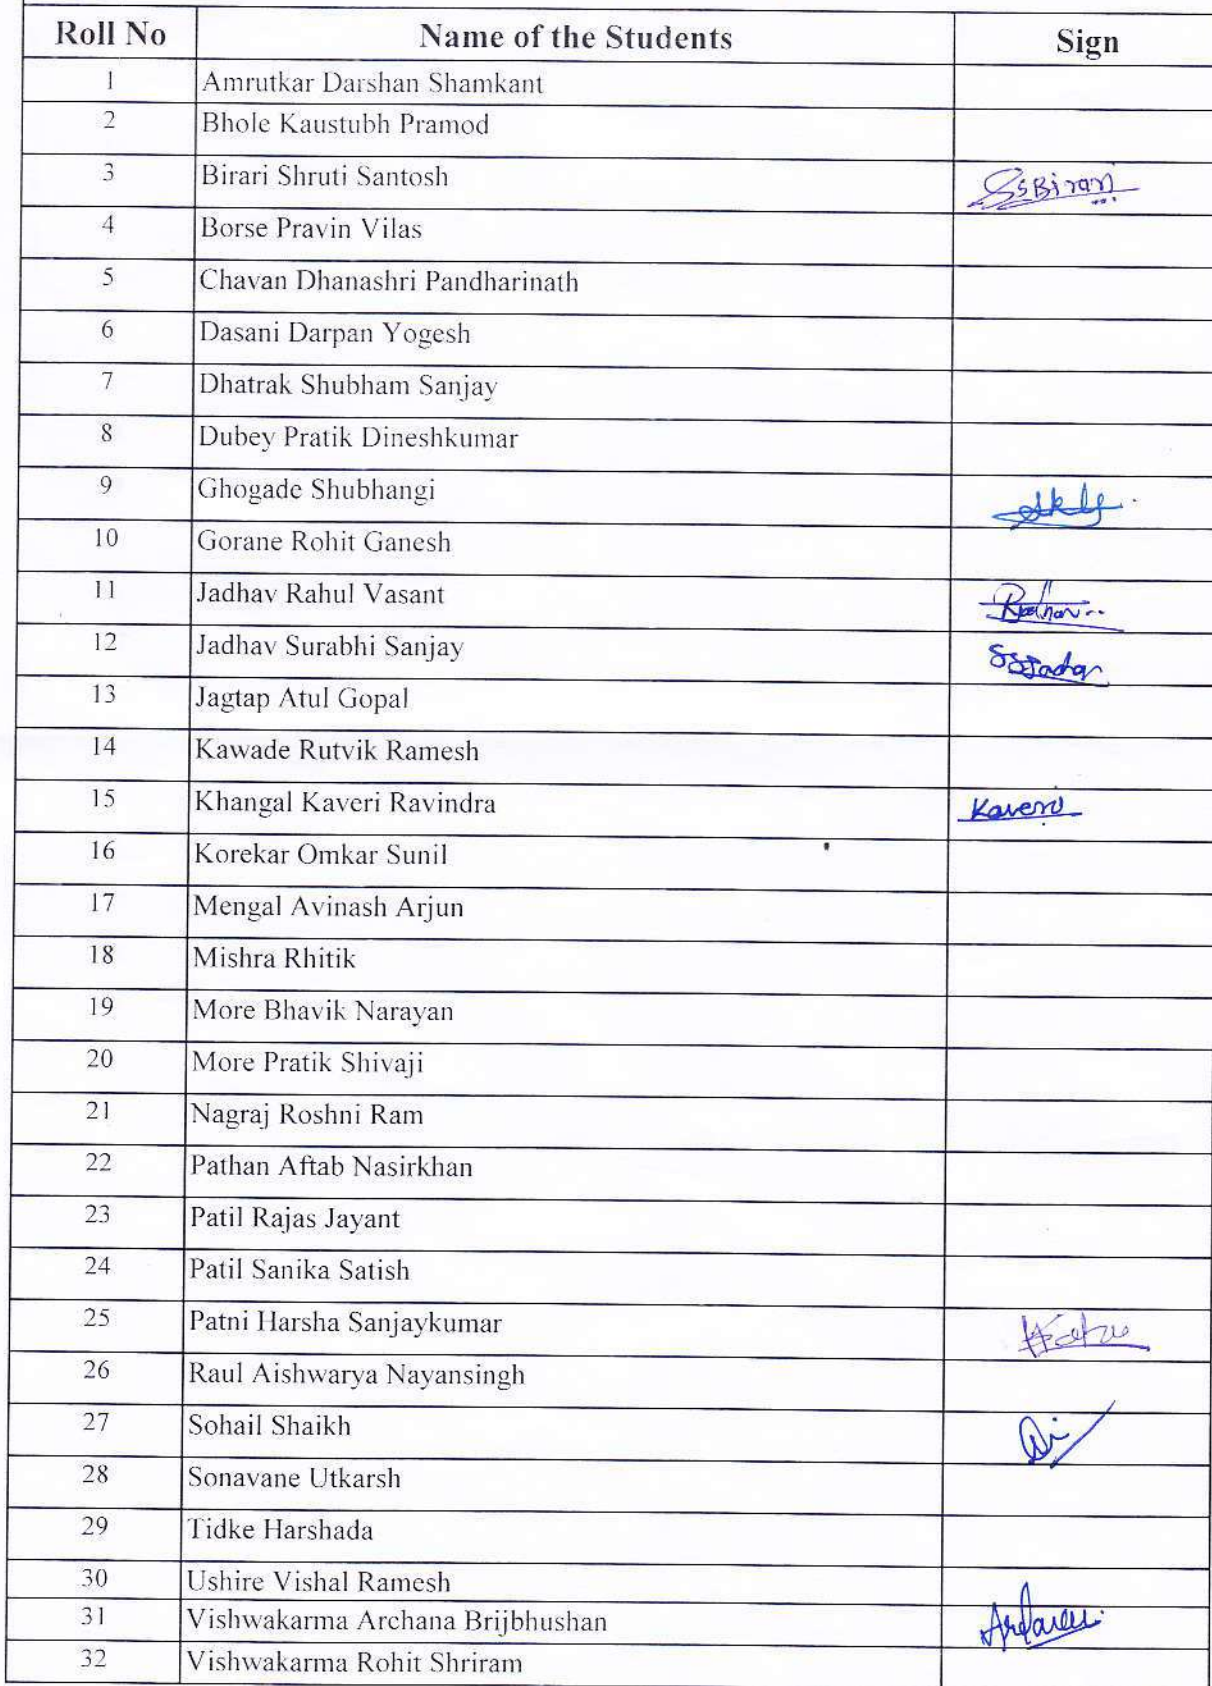 Roll No Name of the Students Sign
1 Amrutkar Darshan Shamkant
2 Bhole Kaustubh Pramod
3 Birari Shruti Santosh SSBirari
4 Borse Pravin Vilas
5 Chavan Dhanashri Pandharinath
6 Dasani Darpan Yogesh
7 Dhatrak Shubham Sanjay
8 Dubey Pratik Dineshkumar
9 Ghogade Shubhangi
10 Gorane Rohit Ganesh
11 Jadhav Rahul Vasant
12 Jadhav Surabhi Sanjay
13 Jagtap Atul Gopal
14 Kawade Rutvik Ramesh
15 Khangal Kaveri Ravindra Kaveri
16 Korekar Omkar Sunil
17 Mengal Avinash Arjun
18 Mishra Rhitik
19 More Bhavik Narayan
20 More Pratik Shivaji
21 Nagraj Roshni Ram
22 Pathan Aftab Nasirkhan
23 Patil Rajas Jayant
24 Patil Sanika Satish
25 Patni Harsha Sanjaykumar
26 Raul Aishwarya Nayansingh
27 Sohail Shaikh
28 Sonavane Utkarsh
29 Tidke Harshada
30 Ushire Vishal Ramesh
31 Vishwakarma Archana Brijbhushan
32 Vishwakarma Rohit Shriram